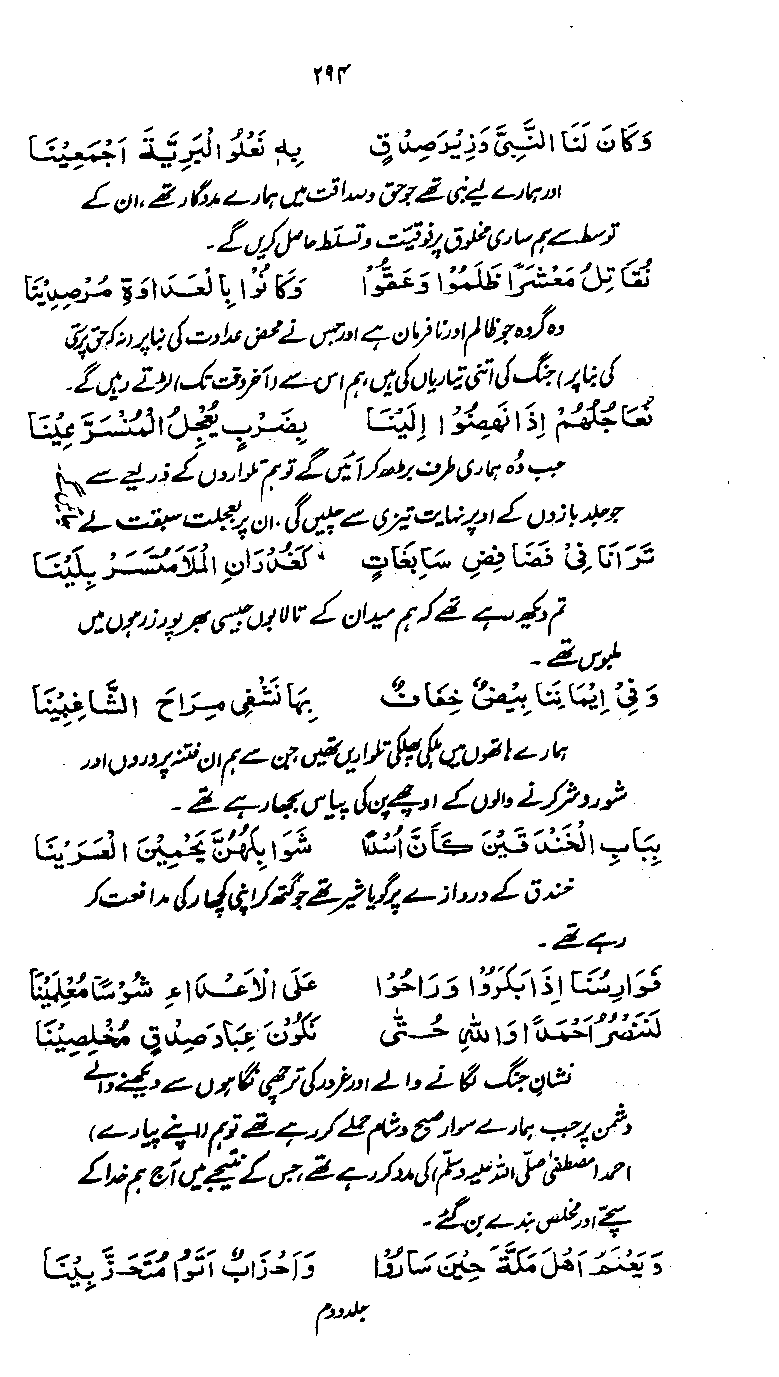 ۲۹۴
وَكَانَ لَنَا النَّبِيَّ وَزِيْرَ صِدْقٍ بِهِ نَعْلُو الْبَرِيَّةَ اَجْمَعِيْنَا
اور ہمارے لیے نبی تھے جو حق و صداقت میں ہمارے مددگار تھے، ان کے
توسط سے ہم ساری مخلوق پر فوقیت و تسلط حاصل کریں گے۔
نُقَاتِلُ مَعْشَرًا ظَلَمُوْا وَعَقُّوْا وَكَانُوْا بِالْعَدَاوَةِ مُرْصِدِيْنَا
وہ گروہ جو ظالم اور نافرمان ہے اور جس نے محض عداوت کی بنا پر (نہ کہ حق پرستی
کی بنا پر) جنگ کی اتنی تیاریاں کی ہیں، ہم اس سے (آخر وقت تک) لڑتے رہیں گے۔
نُعَاجِلُهُمْ اِذَا نَهَضُوْا اِلَيْنَا بِضَرْبٍ يُعْجِلُ الْمُتَسَرِّعِيْنَا
جب وُہ ہماری طرف بڑھ کر آئیں گے تو ہم تلواروں کے ذریعے سے
جو جلد بازوں کے اوپر نہایت تیزی سے چلیں گی، ان پر بعجلت سبقت لے
تَرَانَا فِيْ فَضَافِضِ سَابِغَاتٍ كَغُدْرَانِ الْمَلَا مُتَسَرْبِلِيْنَا
تم دیکھ رہے تھے کہ ہم میدان کے تالابوں جیسی بھرپور زرہوں میں
ملبوس تھے۔
وَفِيْ اِيْمَانِنَا بِيْضٌ خِفَافٌ بِهَا نَشْفِي مِرَاحَ الشَّاغِبِيْنَا
ہمارے ہاتھوں میں ہلکی پھلکی تلواریں تھیں جن سے ہم ان فتنہ پروروں اور
شور و شر کرنے والوں کے اوچھے پن کی پیاس بجھا رہے تھے۔
بِبَابِ الْخَنْدَقَيْنِ كَاَنَّ اُسْدًا شَوَابِلَهُنَّ يَحْمِيْنَ الْعَرِيْنَا
خندق کے دروازے پر گویا شیر تھے جو گتھ کر اپنی کچھار کی مدافعت کر
رہے تھے۔
فَوَارِسُنَا اِذَا بَكَرُوْا وَرَاحُوْا عَلَى الْاَعْدَاءِ شُوْسًا مُعْلِمِيْنَا
لِنَنْصُرَ اَحْمَدًا وَاللهِ حُتّٰى نَكُوْنَ عِبَادَ صِدْقٍ مُخْلِصِيْنَا
نشانِ جنگ لگانے والے اور غرور کی ترچھی نگاہوں سے دیکھنے والے
دشمن پر جب ہمارے سوار صبح و شام حملے کر رہے تھے تو ہم (اپنے پیارے)
احمد (مصطفیٰ صلّی اللہ علیہ وسلّم) کی مدد کر رہے تھے، جس کے نتیجے میں آج ہم خدا کے
سچے اور مخلص بندے بن گئے۔
وَيَعْلَمَ اَهْلُ مَكَّةَ حِيْنَ سَارُوْا وَاَحْزَابٌ اَتَوْا مُتَحَزِّبِيْنَا
جلد دوم